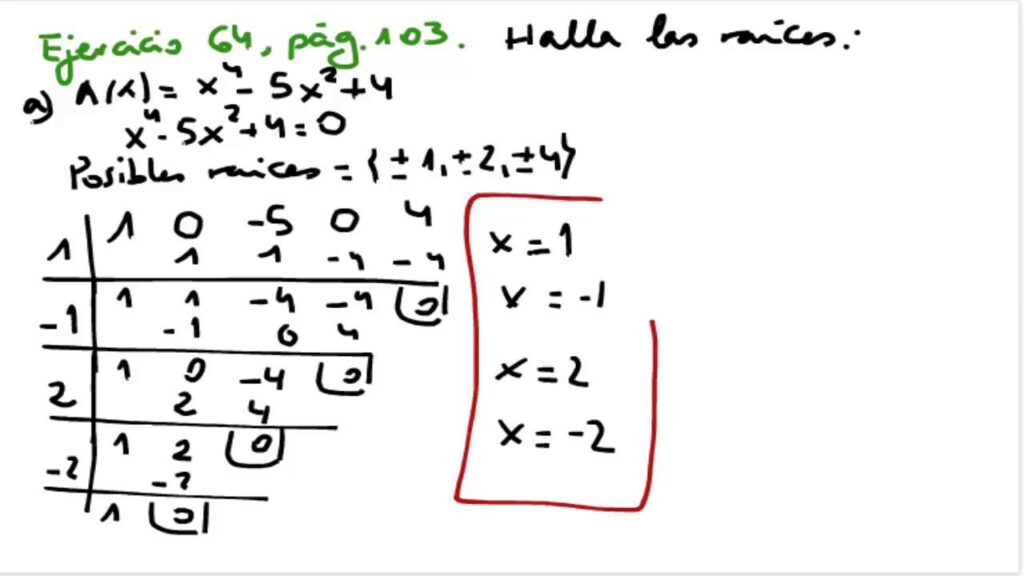 Ejercicio 64, pág. 103. Halla las raíces:
a) A(x) = x⁴ - 5x² + 4
x⁴ - 5x² + 4 = 0
Posibles raices = {± 1, ± 2, ± 4}
1 0 -5 0 4
1 1 1 -4 -4
1 1 -4 -4 0
-1 -1 0 4
1 0 -4 0
2 2 4
1 2 0
-2 -2
1 0
x = 1
x = -1
x = 2
x = -2